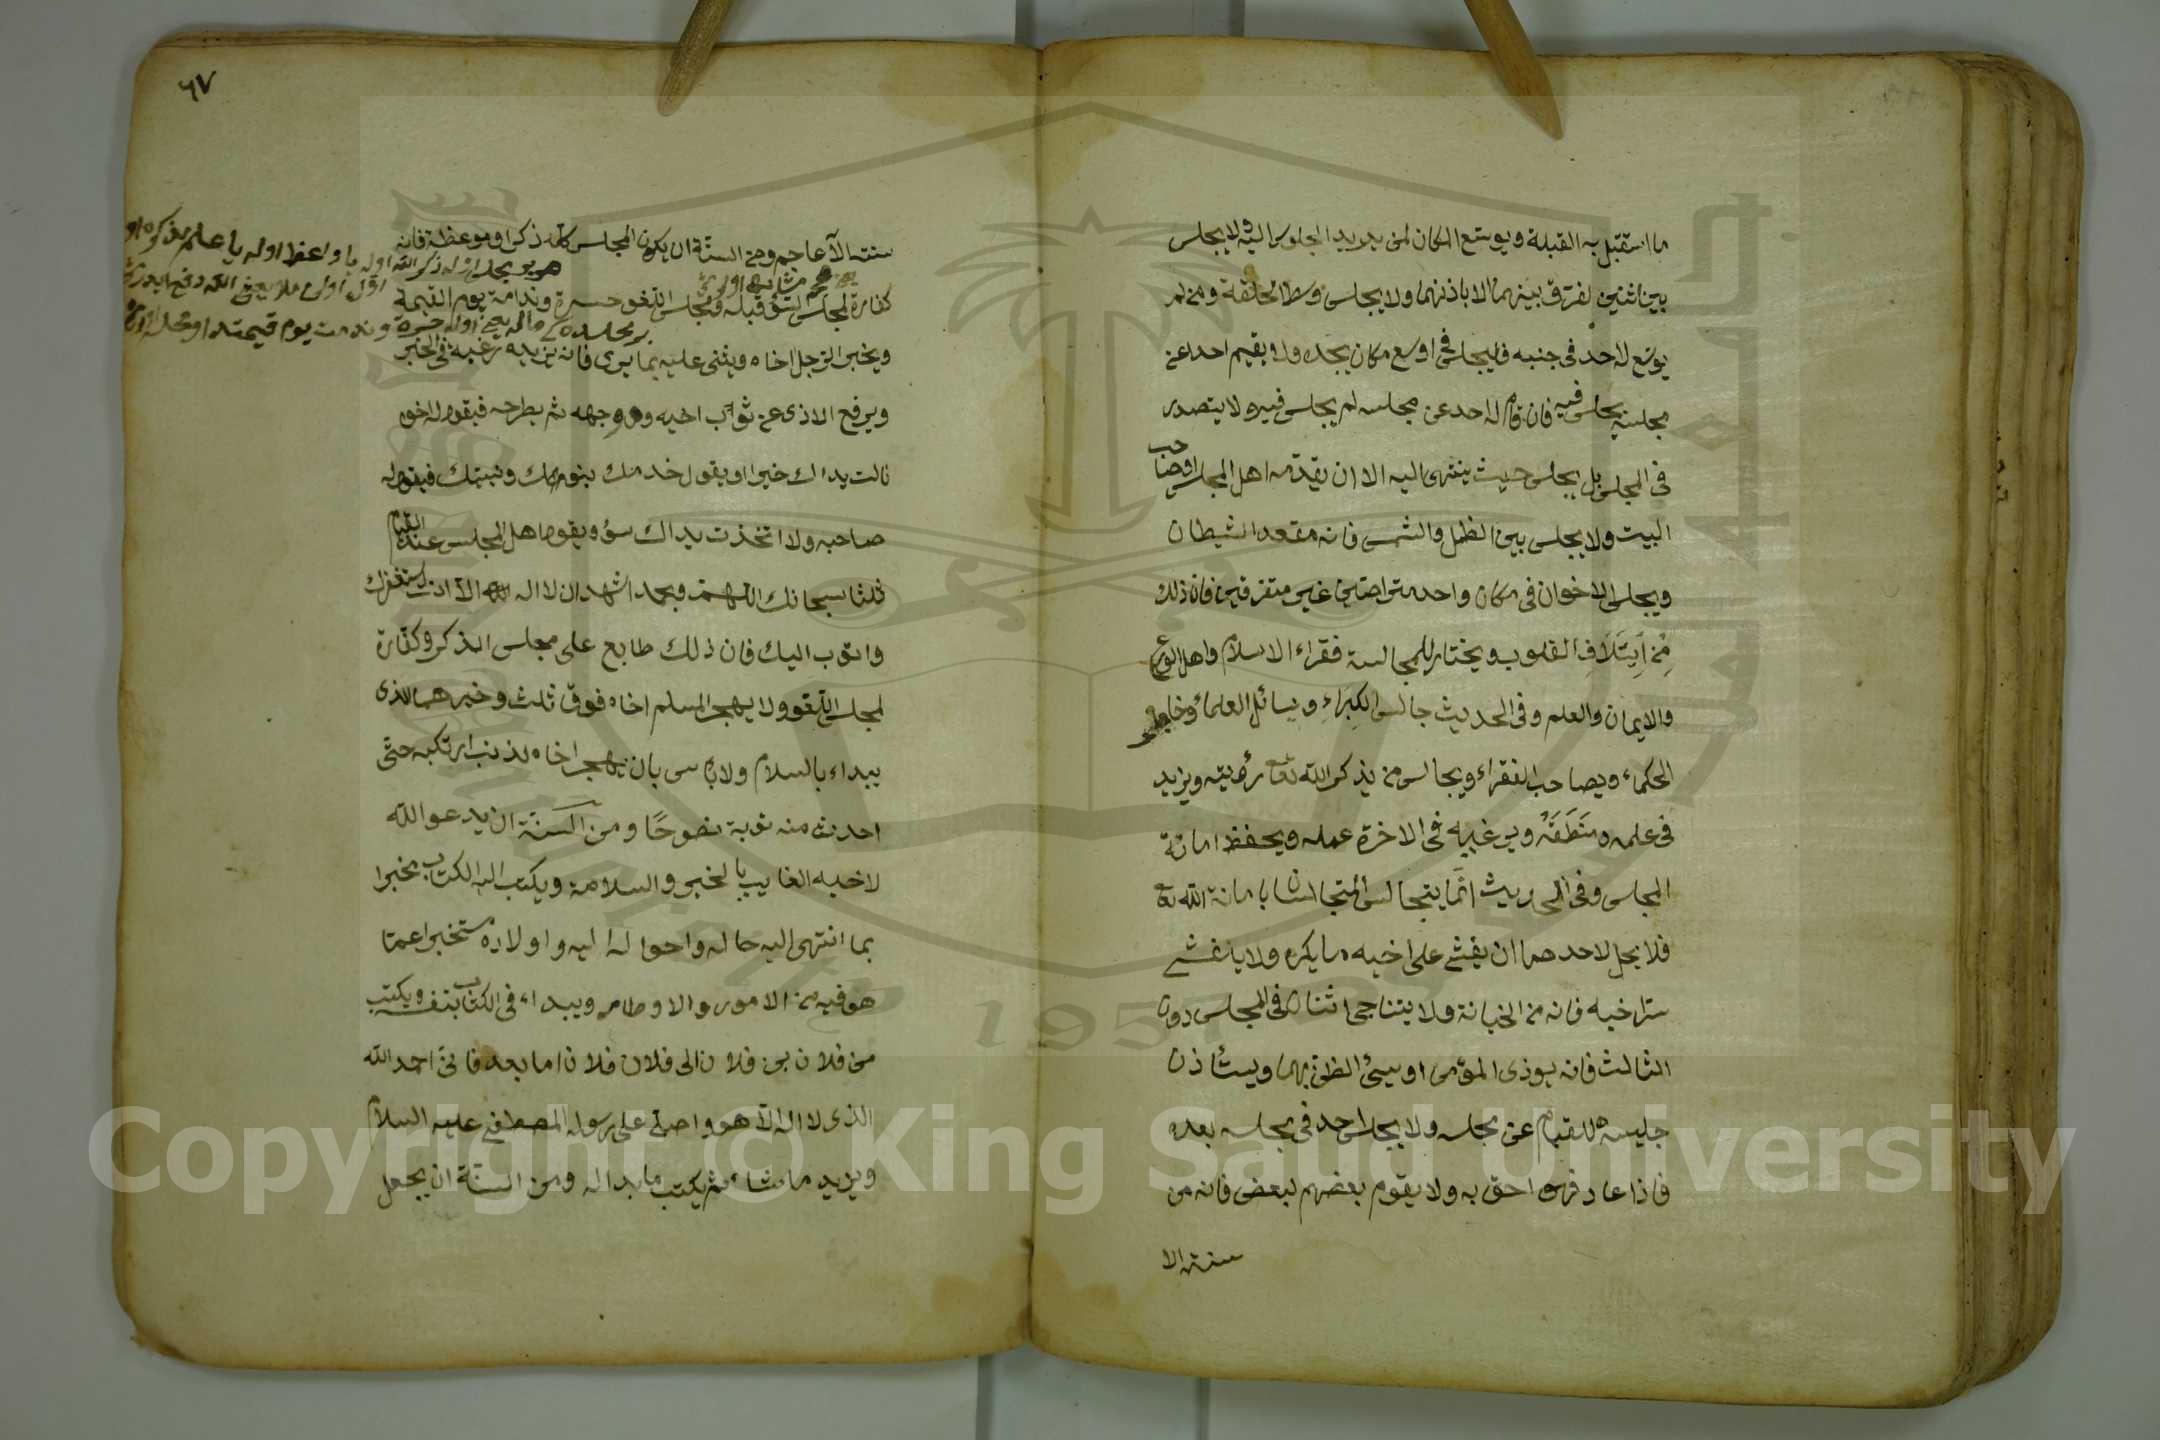 ما استقبل به القبلة ويوسع المكان لمن يريد الجلوس اليه ولا يجلس
بين اثنين لفرق بينهما الا باذنهما ولا يجلس وسط الحلقة ومن لم
يوسع له احد في جنبه فليجلس في اوسع مكان يجده ولا يقيم احدا عن
مجلسه يجلس فيه فان قام له احد عن مجلسه لم يجلس فيه ولا يتصدر
في المجلس بل يجلس حيث ينتهى اليه الا ان يقدمه اهل المجلس او صاحب
البيت ولا يجلس بين الظل والشمس فانه مقعد الشيطان
ويجلس الاخوان في مكان واحد متراصين غير متفرقين فان ذلك
من ايتلاف القلوب ويختار للمجالسة فقراء الاسلام واهل الورع
والايمان والعلم وفى الحديث جالس الكبراء وسائل العلماء وخالط
الحكماء ويصاحب الفقراء ويجالس من يذكر الله تعا رؤيته ويزيد
في علمه منطقه ويرغبه في الاخرة عمله ويحفظ امانة
المجلس وفى الحديث انما يتجالس المتجالسان بامانة الله تعا
فلا يحل لاحدهما ان يفشي على اخيه ما يكره ولا يفشي
سر اخيه فانه من الخيانة ولا يتناجى اثنان في المجلس دون
الثالث فانه يوذى المؤمن او يسئ الظن بهما ويستأذن
جليسه للقيام عن مجلسه ولا يجلس احد في مجلسه بعده
فاذا عاد فهو احق به ولا يقوم بعضهم لبعض فانه من
سنته الا
٦٧
سنته الآعاجم ومن السنة ان يكون المجلس كله ذكرا وموعظة فانه
كفارة لمجلس السؤ قبله ومجلس اللغو حسرة وندامة يوم القيمة
ويخبر الرجل اخاه ويثنى عليه بما يرى فانه يزيده رغبة في الخير
ويرفع الاذى عن ثوب اخيه ووجهه ثم يطرحه فيقول له اخوه
نالت يداك خيرا او يقول خدمك بنوك وبنيتك فيقول له
صاحبه ولا اتخذت يداك سؤ ويقول اهل المجلس عند القيام
ثلثا سبحانك اللهم وبحمدك اشهد ان لا اله الا انت استغفرك
واتوب اليك فان ذلك طابع على مجلس الذكر وكفارة
لمجلس اللغو ولا يهجر المسلم اخاه فوق ثلث وخيرهما الذى
يبداء بالسلام ولا باس بان يهجر اخاه لذنب ارتكبه حتى
احدث منه توبة نصوحا ومن السنة ان يدعو الله
لاخيه الغايب بالخير والسلامة ويكتب اليه الكتاب مخبرا
بما انتهى اليه حاله واحواله اليه واولاده مستخبرا عما
هو فيه من الامور والاوطار ويبداء في الكتاب بنفسه ويكتب
من فلان بن فلان الى فلان فلان اما بعد فانى احمد الله
الذى لا اله الا هو واصلى على رسوله المصطفى عليه السلام
ويزيد ما شاء ثم يكتب ما بدا له ومن السنة ان يجعل
1957
Copyright © King Saud University